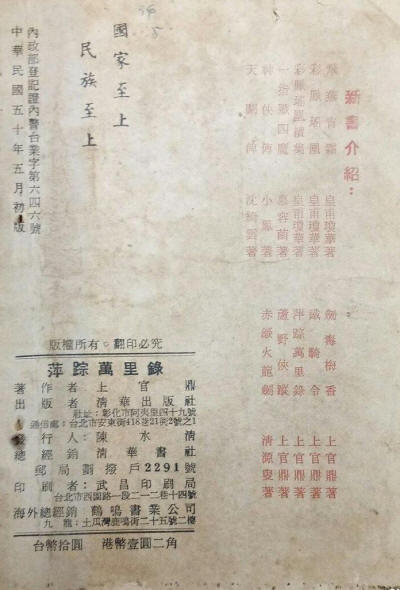 新書介紹：
飛燕宵霜 皇甫瓊華著
彩鳳瑤凰 皇甫瓊華著
彩鳳瑤凰續集 皇甫瓊華著
一指蕩四魔 慕容蘭著
神俠傳 小鳳著
天闕碑 沈綺雲著
劍毒梅香 上官鼎著
鐵騎令 上官鼎著
萍踪萬里錄 上官鼎著
蘆野俠蹤 上官鼎著
赤線火龍劍 清源叟著
國家至上
民族至上
內政部登記證內警台業字第六四六號
中華民國五十年五月初版
版權所有。翻印必究
萍踪萬里錄
著作者 上官鼎
出版者 清華出版社
社址：彰化市阿夷里四十九號
通信處：台北市安東街418巷21衖2號之1
發行人 陳水清
總經銷 清華書社
郵局劃撥戶2291號
印刷者 武昌印刷局
台北市西園路一段二一二巷十四號
海外總經銷 鶴鳴書業公司
九龍：土瓜灣鹿鳴街二十五號二樓
台幣拾圓 港幣壹圓二角